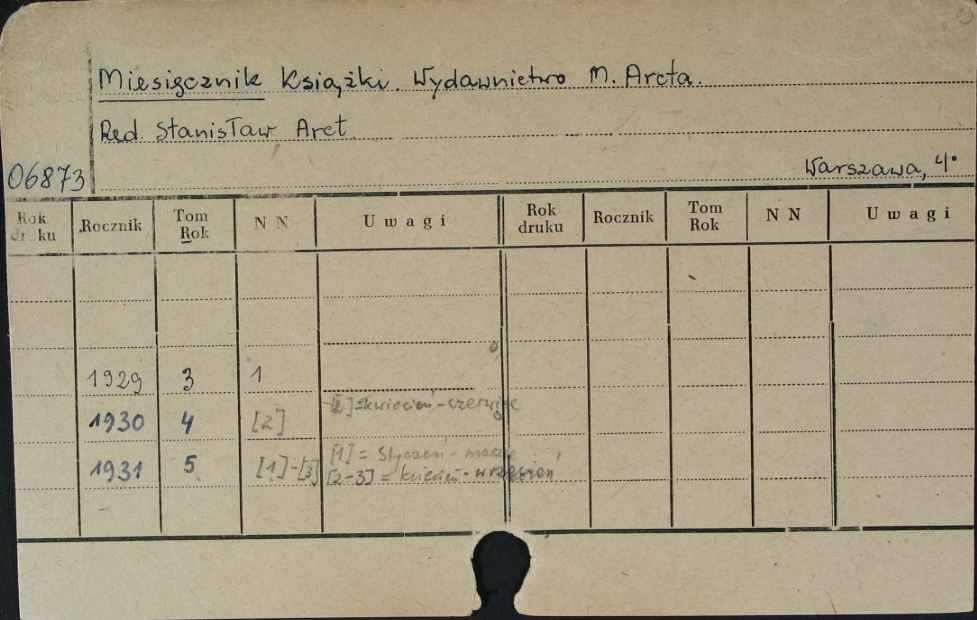 Miesięcznik Książki. Wydawnictwo M. Arcta.
Red. Stanisław Arct
06873 Warszawa, 4°
Rok druku Rocznik Tom Rok N N Uwagi Rok druku Rocznik Tom Rok N N Uwagi
1929 3 1
1930 4 [2] [2] = kwiecień - czerwiec
1931 5 [1]-[3] [1] = Styczeń - marzec
[2-3] = kwiecień - wrzesień